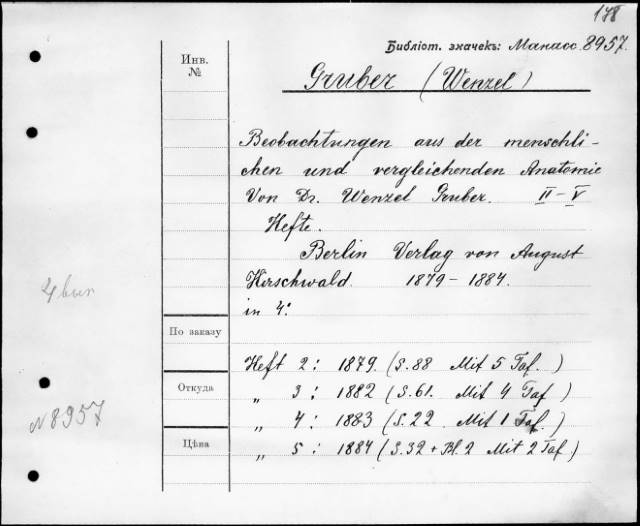 178
Библіот. значекъ: Манасс. 8957.
Инв.
№
Gruber (Wenzel)
Beobachtungen aus der menschli-
chen und vergleichenden Anatomie
Von Dr. Wenzel Gruber. II-V
Hefte.
Berlin Verlag von August
Hirschwald. 1879-1884.
in 4:
4 вып
По заказу
Heft 2: 1879. (S. 88 Mit 5 Taf.)
Откуда
„ 3: 1882 (S. 61. Mit 4 Taf)
N 8957
„ 4: 1883 (S. 22. Mit 1 Taf.)
Цѣна
„ 5: 1884 (S. 32 + Bl. 2 Mit 2 Taf.)